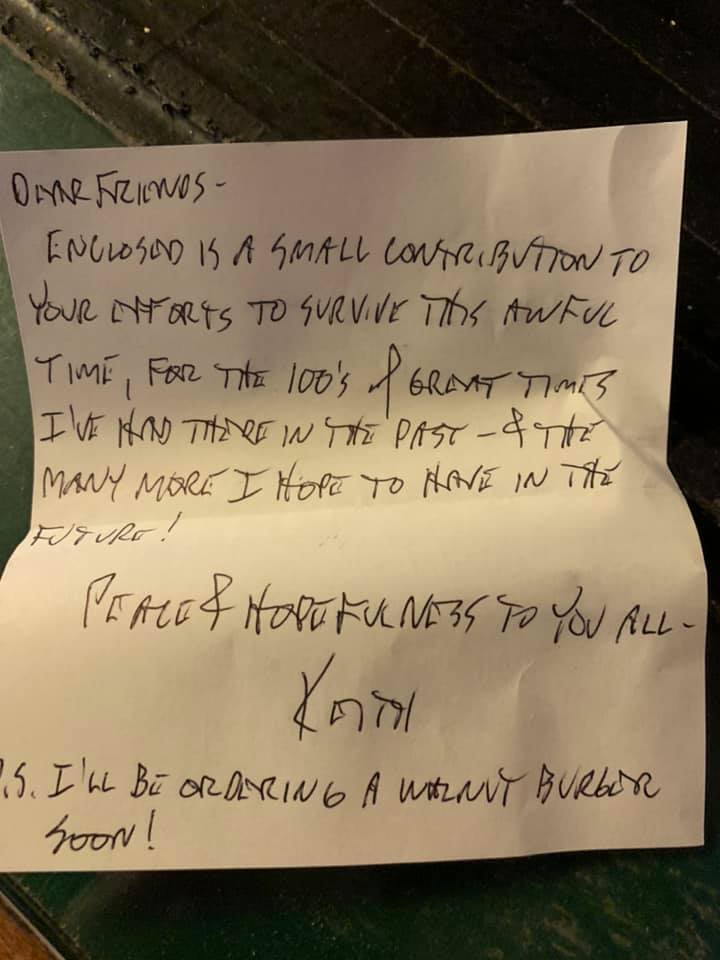 DEAR FRIENDS -
ENCLOSED IS A SMALL CONTRIBUTION TO
YOUR EFFORTS TO SURVIVE THIS AWFUL
TIME, FOR THE 100'S of GREAT TIMES
I'VE HAD THERE IN THE PAST - & THE
MANY MORE I HOPE TO HAVE IN THE
FUTURE!
PEACE & HOPEFULNESS TO YOU ALL -
KEITH
P.S. I'LL BE ORDERING A WALNUT BURGER
SOON!